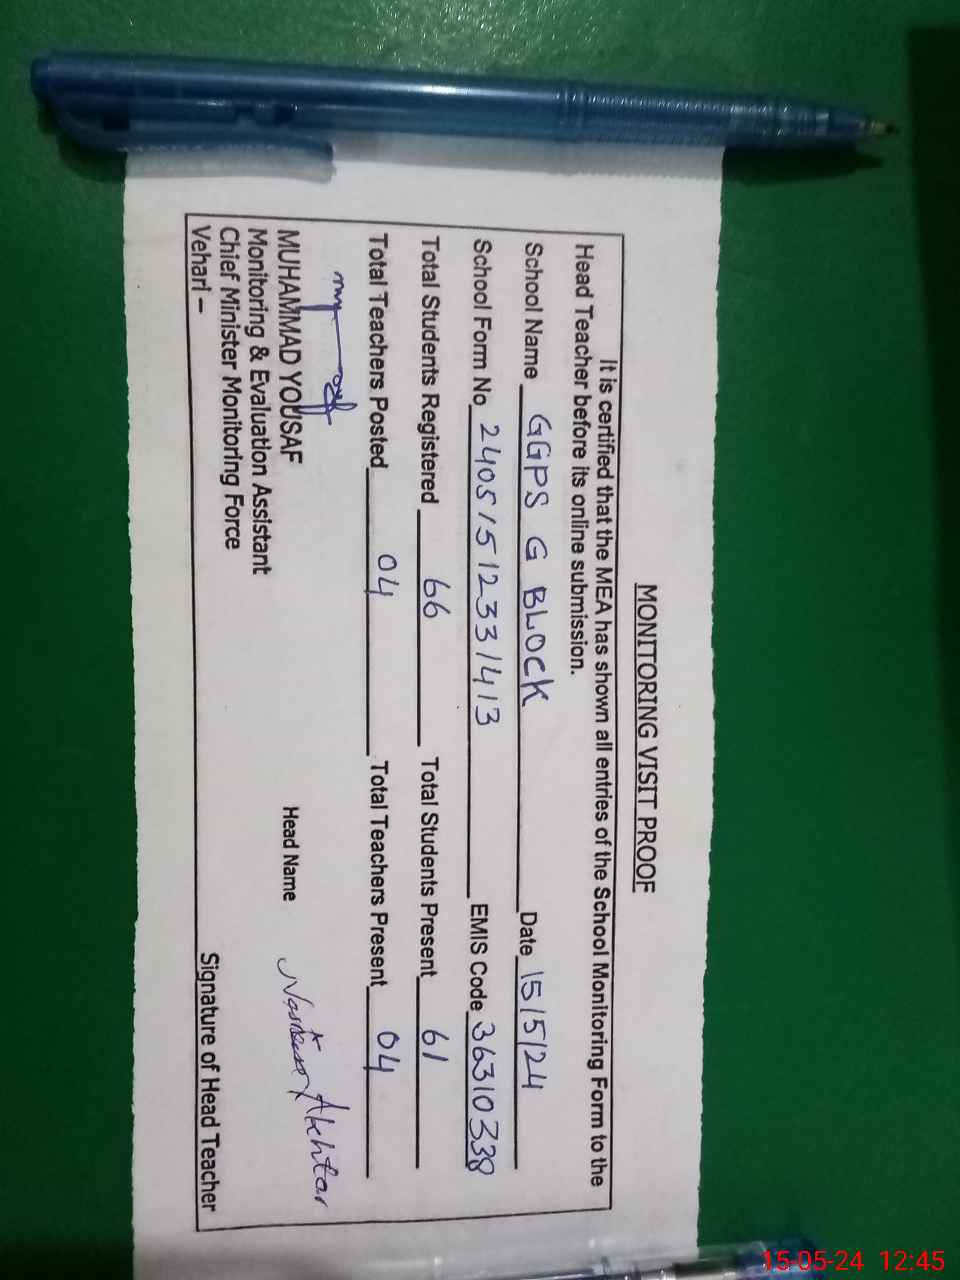 MONITORING VISIT PROOF
It is certified that the MEA has shown all entries of the School Monitoring Form to the
Head Teacher before its online submission.
School Name GGPS G BLOCK Date 15/5/24
School Form No 24051512331413 EMIS Code 36310338
Total Students Registered 66 Total Students Present 61
Total Teachers Posted 04 Total Teachers Present 04
MUHAMMAD YOUSAF Head Name Akhtar
Monitoring & Evaluation Assistant
Chief Minister Monitoring Force
Vehari – Signature of Head Teacher
15-05-24 12:45